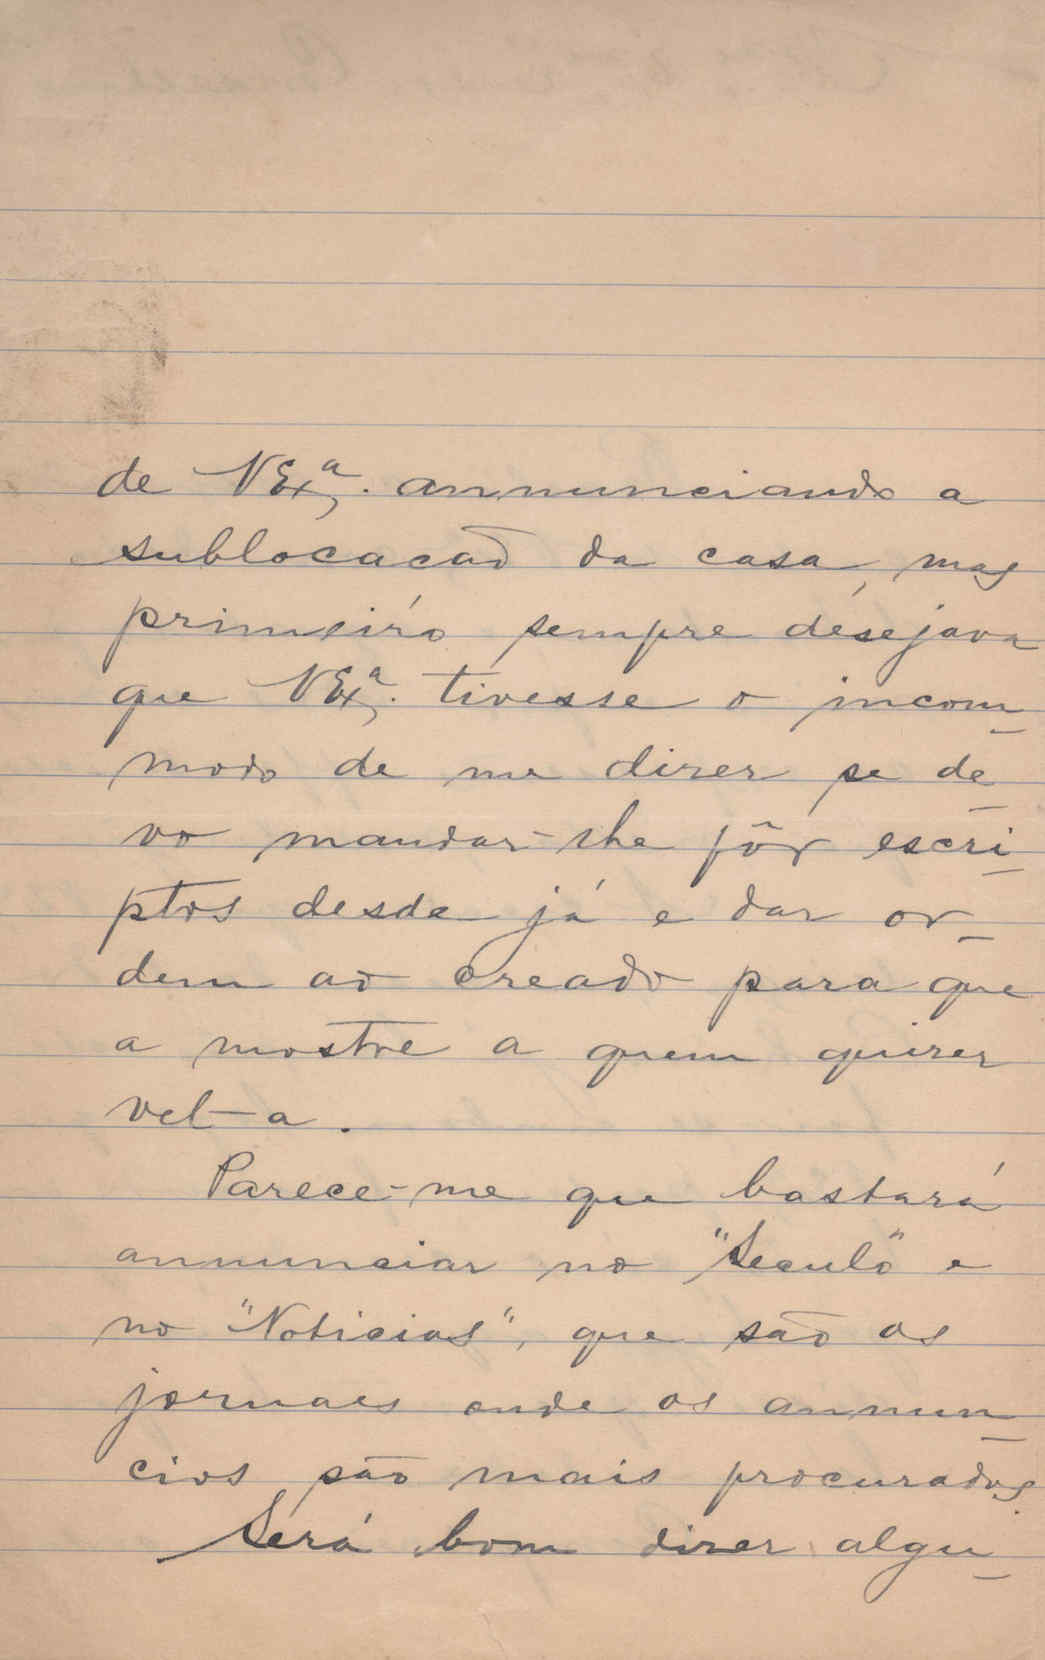 de V Exª. annunciando a
sublocacaõ da casa, mas
primeiro sempre desejava
que V Exª. tivesse o incom_
modo de me dizer se de_
vo mandar-lhe pôr escri_
ptos desde já e dar or_
dem ao creado para que
a mostre a quem quizer
vel-a.
Parece-me que bastará
annunciar no "Seculo" e
no "Noticias", que são os
jornaes onde os annun_
cios são mais procurados.
Será bom dizer algu_